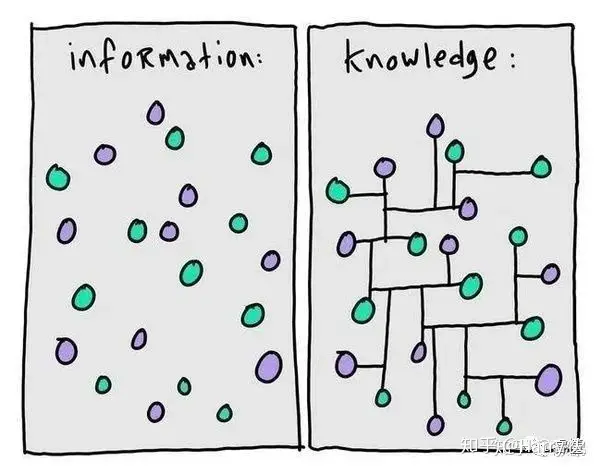 information:
knowledge:
知乎